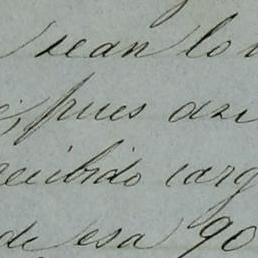 sean lo
pues asi
recibido carg
de esa 90